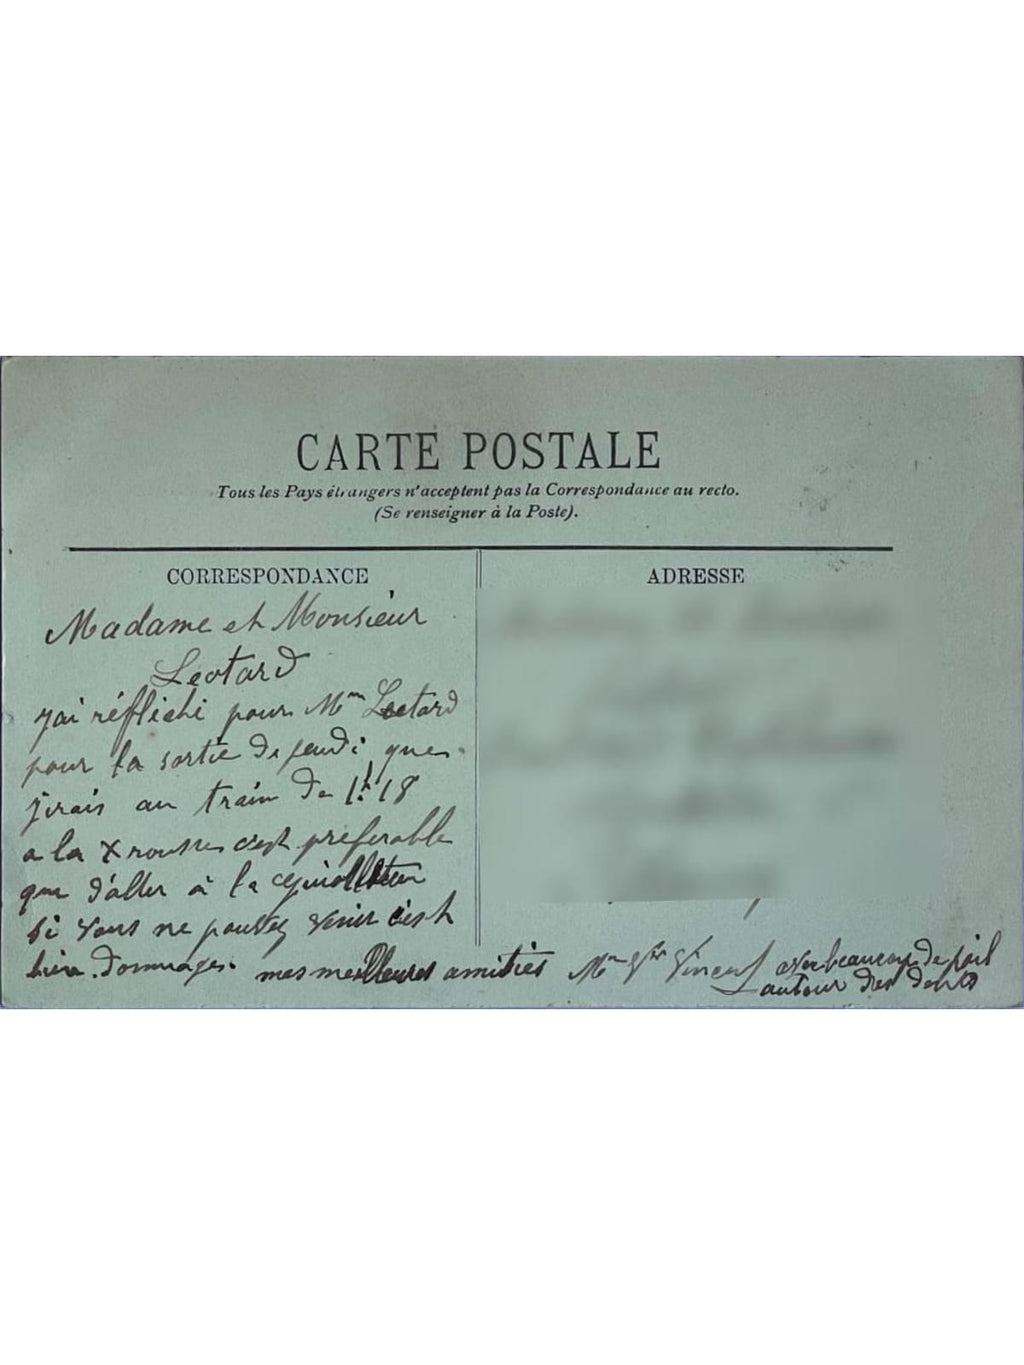 CARTE POSTALE
Tous les Pays étrangers n'acceptent pas la Correspondance au recto.
(Se renseigner à la Poste).
CORRESPONDANCE
ADRESSE
Madame et Monsieur
Leotard
j'ai réfléchi pour Mme Leotard
pour la sortie de jeudi que
j'irais au train de 1h 18
a la X rousse c'est preferable
que d'aller à la
si vous ne pouvez venir c'est
bien dommages. mes meilleures amitiés Mme Vve Vincent avec beaucoup de poil
autour des dents